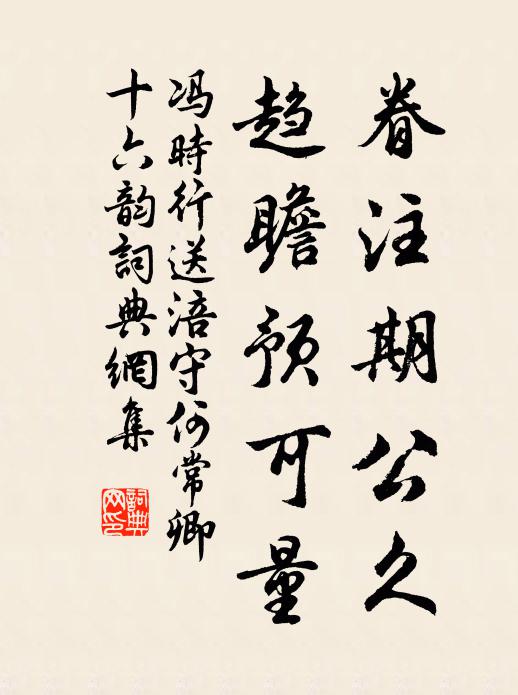 眷注期公久
趋瞻预可量
冯時行送涪守何常卿
十六韵詞典網集
詞典网印